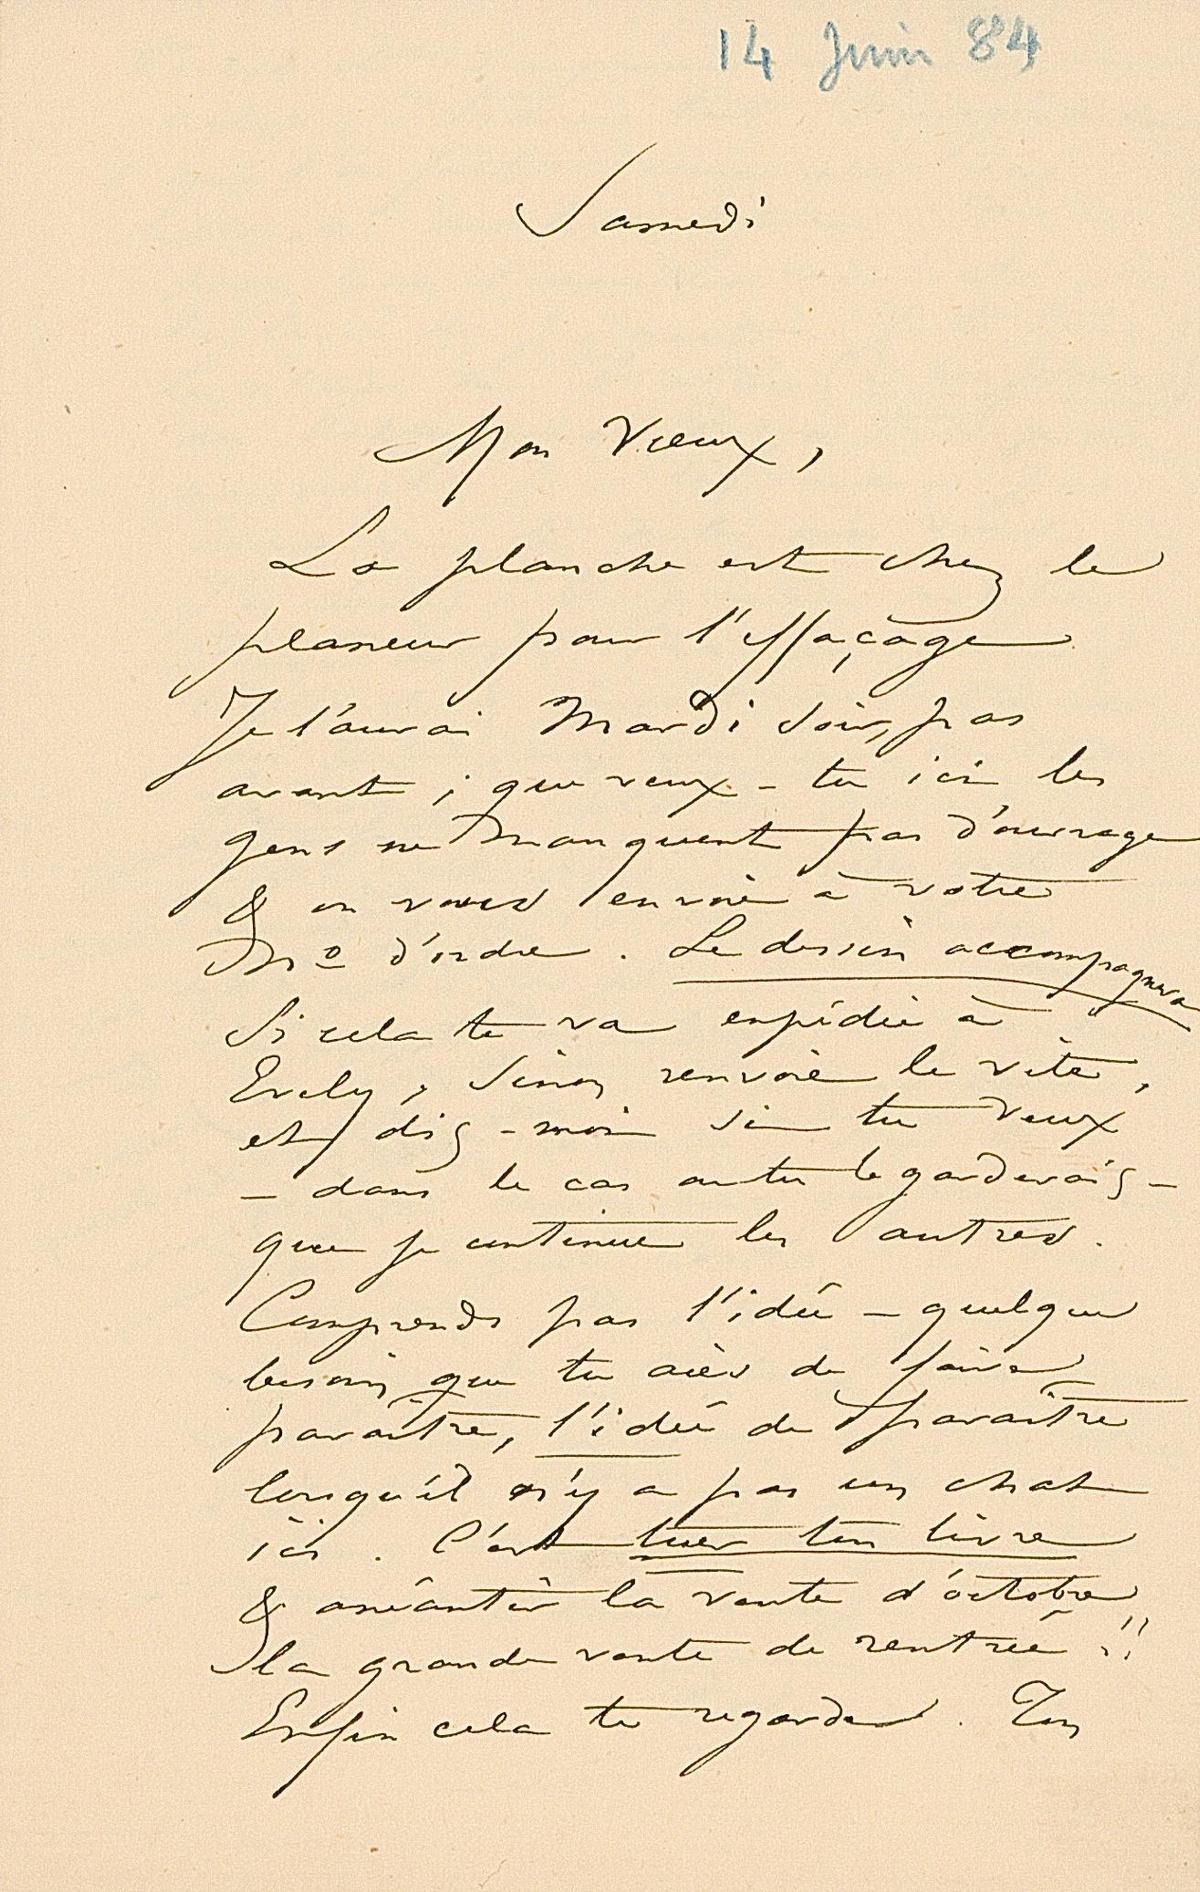 14 Juin 84
Samedi
Mon Vieux,
La planche est chez le
planeur pour l'effaçage
Je l'aurai Mardi soir, pas
avant ; que veux-tu ici les
gens ne manquent pas d'ouvrage
& on vous envoie à votre
No d'ordre. Le dessin accompagnera
Si cela te va expédie à
Evely, sinon renvoie le vite,
et dis-moi si tu veux
- dans le cas ou tu le garderais -
que je continue les autres.
Comprends pas l'idée - quelque
besoin que tu aies de faire
paraître, l'idée de paraître
lorsqu'il n'y a pas un chat
ici. C'est tuer ton livre
& anéantir la vente d'octobre
la grande vente de rentrée !!
Enfin cela te regarde. Ton